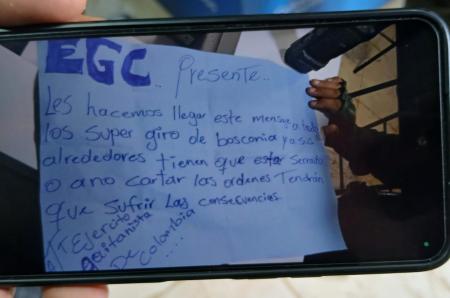 EGC.. Presente..
Les hacemos llegar este mensaje a todo
los super giro de bosconia y a sus
alrededores tienen que estar serrado
o ano cartar las ordenes Tendrán
que sufrir las consecuencias
ATT Ejercito
gaitanista
De Colombia
.....